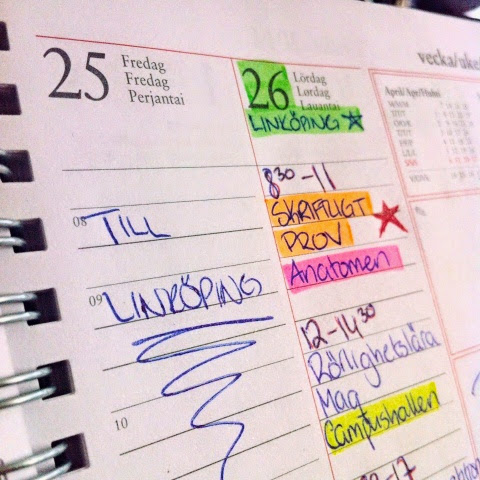 25
Fredag
Fredag
Perjantai
08 TILL
09 LINKÖPING
10
26
Lördag
Lørdag
Lauantai
LINKÖPING
8 30 - 11
SKRIFTLIGT
PROV
Anatomen
12 - 14 30
Rörlighetslära
Mag
Campushallen
vecka/uke
April/Apr/Huhti